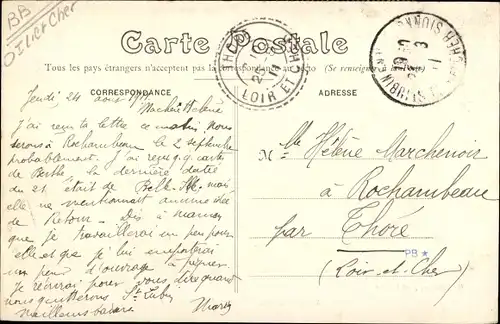 BB
Carte Postale
Tous les pays étrangers n'acceptent pas la correspondance au recto (Se renseigner
CORRESPONDANCE
ADRESSE
LOIR ET CHER
Jeudi 24 août 1911
J'ai reçu ta lettre ce matin. Nous
serons à Rochambeau le 2 septembre
probablement. J'ai reçu q.q. carte
de Berthe, la dernière datée
du 21 était de Belle, mais
elle ne mentionnait aucune idée
de Retour. Dis à maman
que je travaillerai un peu pour
elle et que je lui emporterai
un peu d'ouvrage à
Je écrirai pour vous dire quand
nous quitterons St Lubin
Meilleurs baisers
Mlle Hélène Marchenoir
à Rochambeau
par Thoré
(Loir-et-Cher)
PB